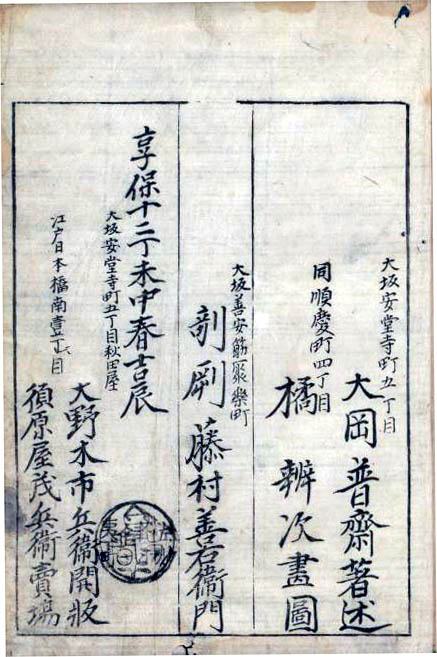 大坂安堂寺町五丁目
大岡普齋著述
同順慶町四丁目
橘辨次畫圖
大坂善安筋聚樂町
彫刷藤村善右衛門
享保十二丁未中春吉辰
大坂安堂寺町五丁目秋田屋
大野木市兵衛開版
江戸日本橋南壹丁目
須原屋茂兵衛賣場